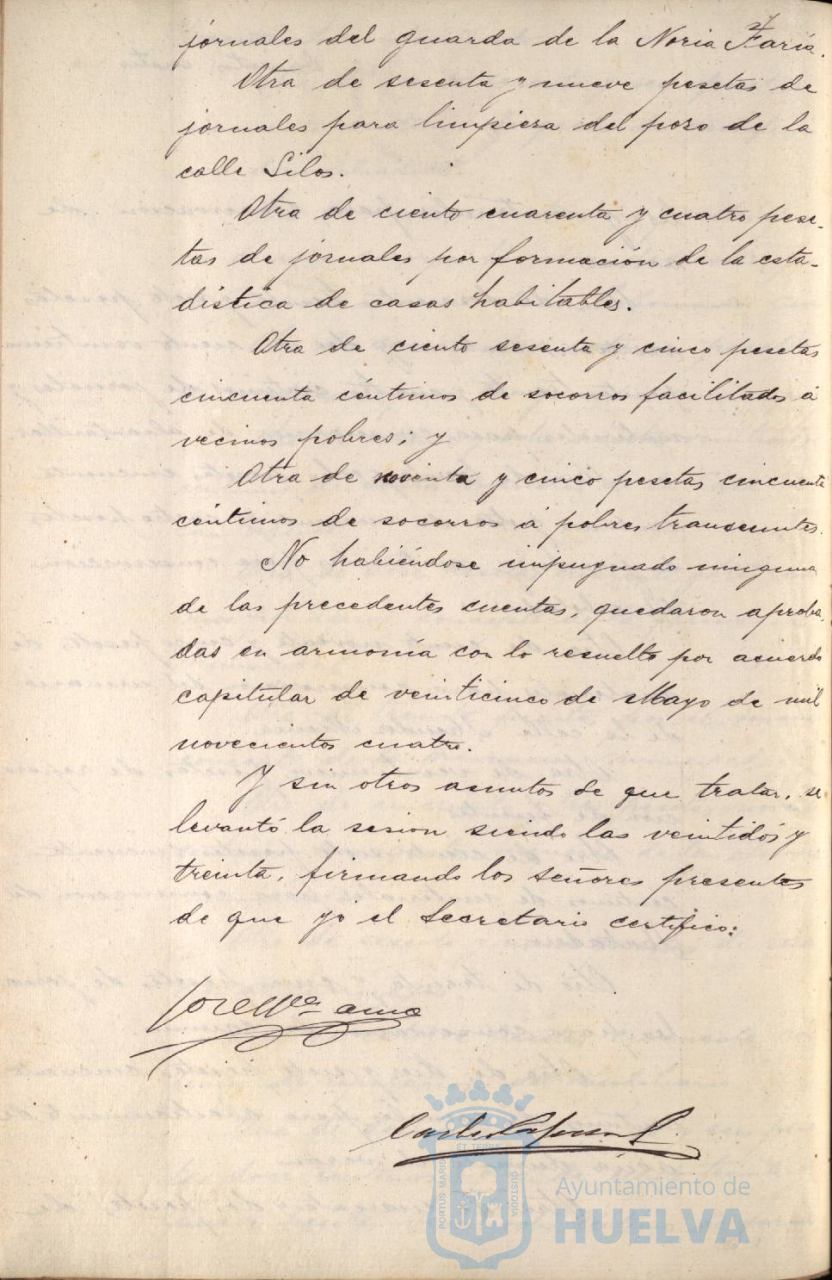 27
jornales del guarda de la Noria Faria.
Otra de sesenta y nueve pesetas de
jornales para limpieza del pozo de la
calle Silos.
Otra de ciento cuarenta y cuatro pese-
tas de jornales por formación de la esta-
dística de casas habitables.
Otra de ciento sesenta y cinco pesetas
cincuenta céntimos de socorros facilitados á
vecinos pobres; y
Otra de noventa y cinco pesetas cincuenta
céntimos de socorros á pobres transeuntes.
No habiéndose impugnado ninguna
de las precedentes cuentas, quedaron aproba-
das en armonía con lo resuelto por acuerdo
capitular de veinticinco de Mayo de mil
novecientos cuatro.
Y sin otros asuntos de que tratar, se
levantó la sesion siendo las veintidós y
treinta, firmando los señores presentes
de que yo el Secretario certifico:
PORTUS MARIS ET TERRAE CUSTODIA
Ayuntamiento de
HUELVA